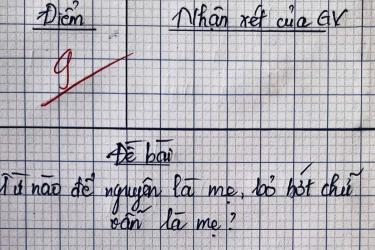 Điểm
Nhận xét của GV
9
Đề bài
Từ nào để nguyên là mẹ, bỏ bớt chữ
vẫn là mẹ?